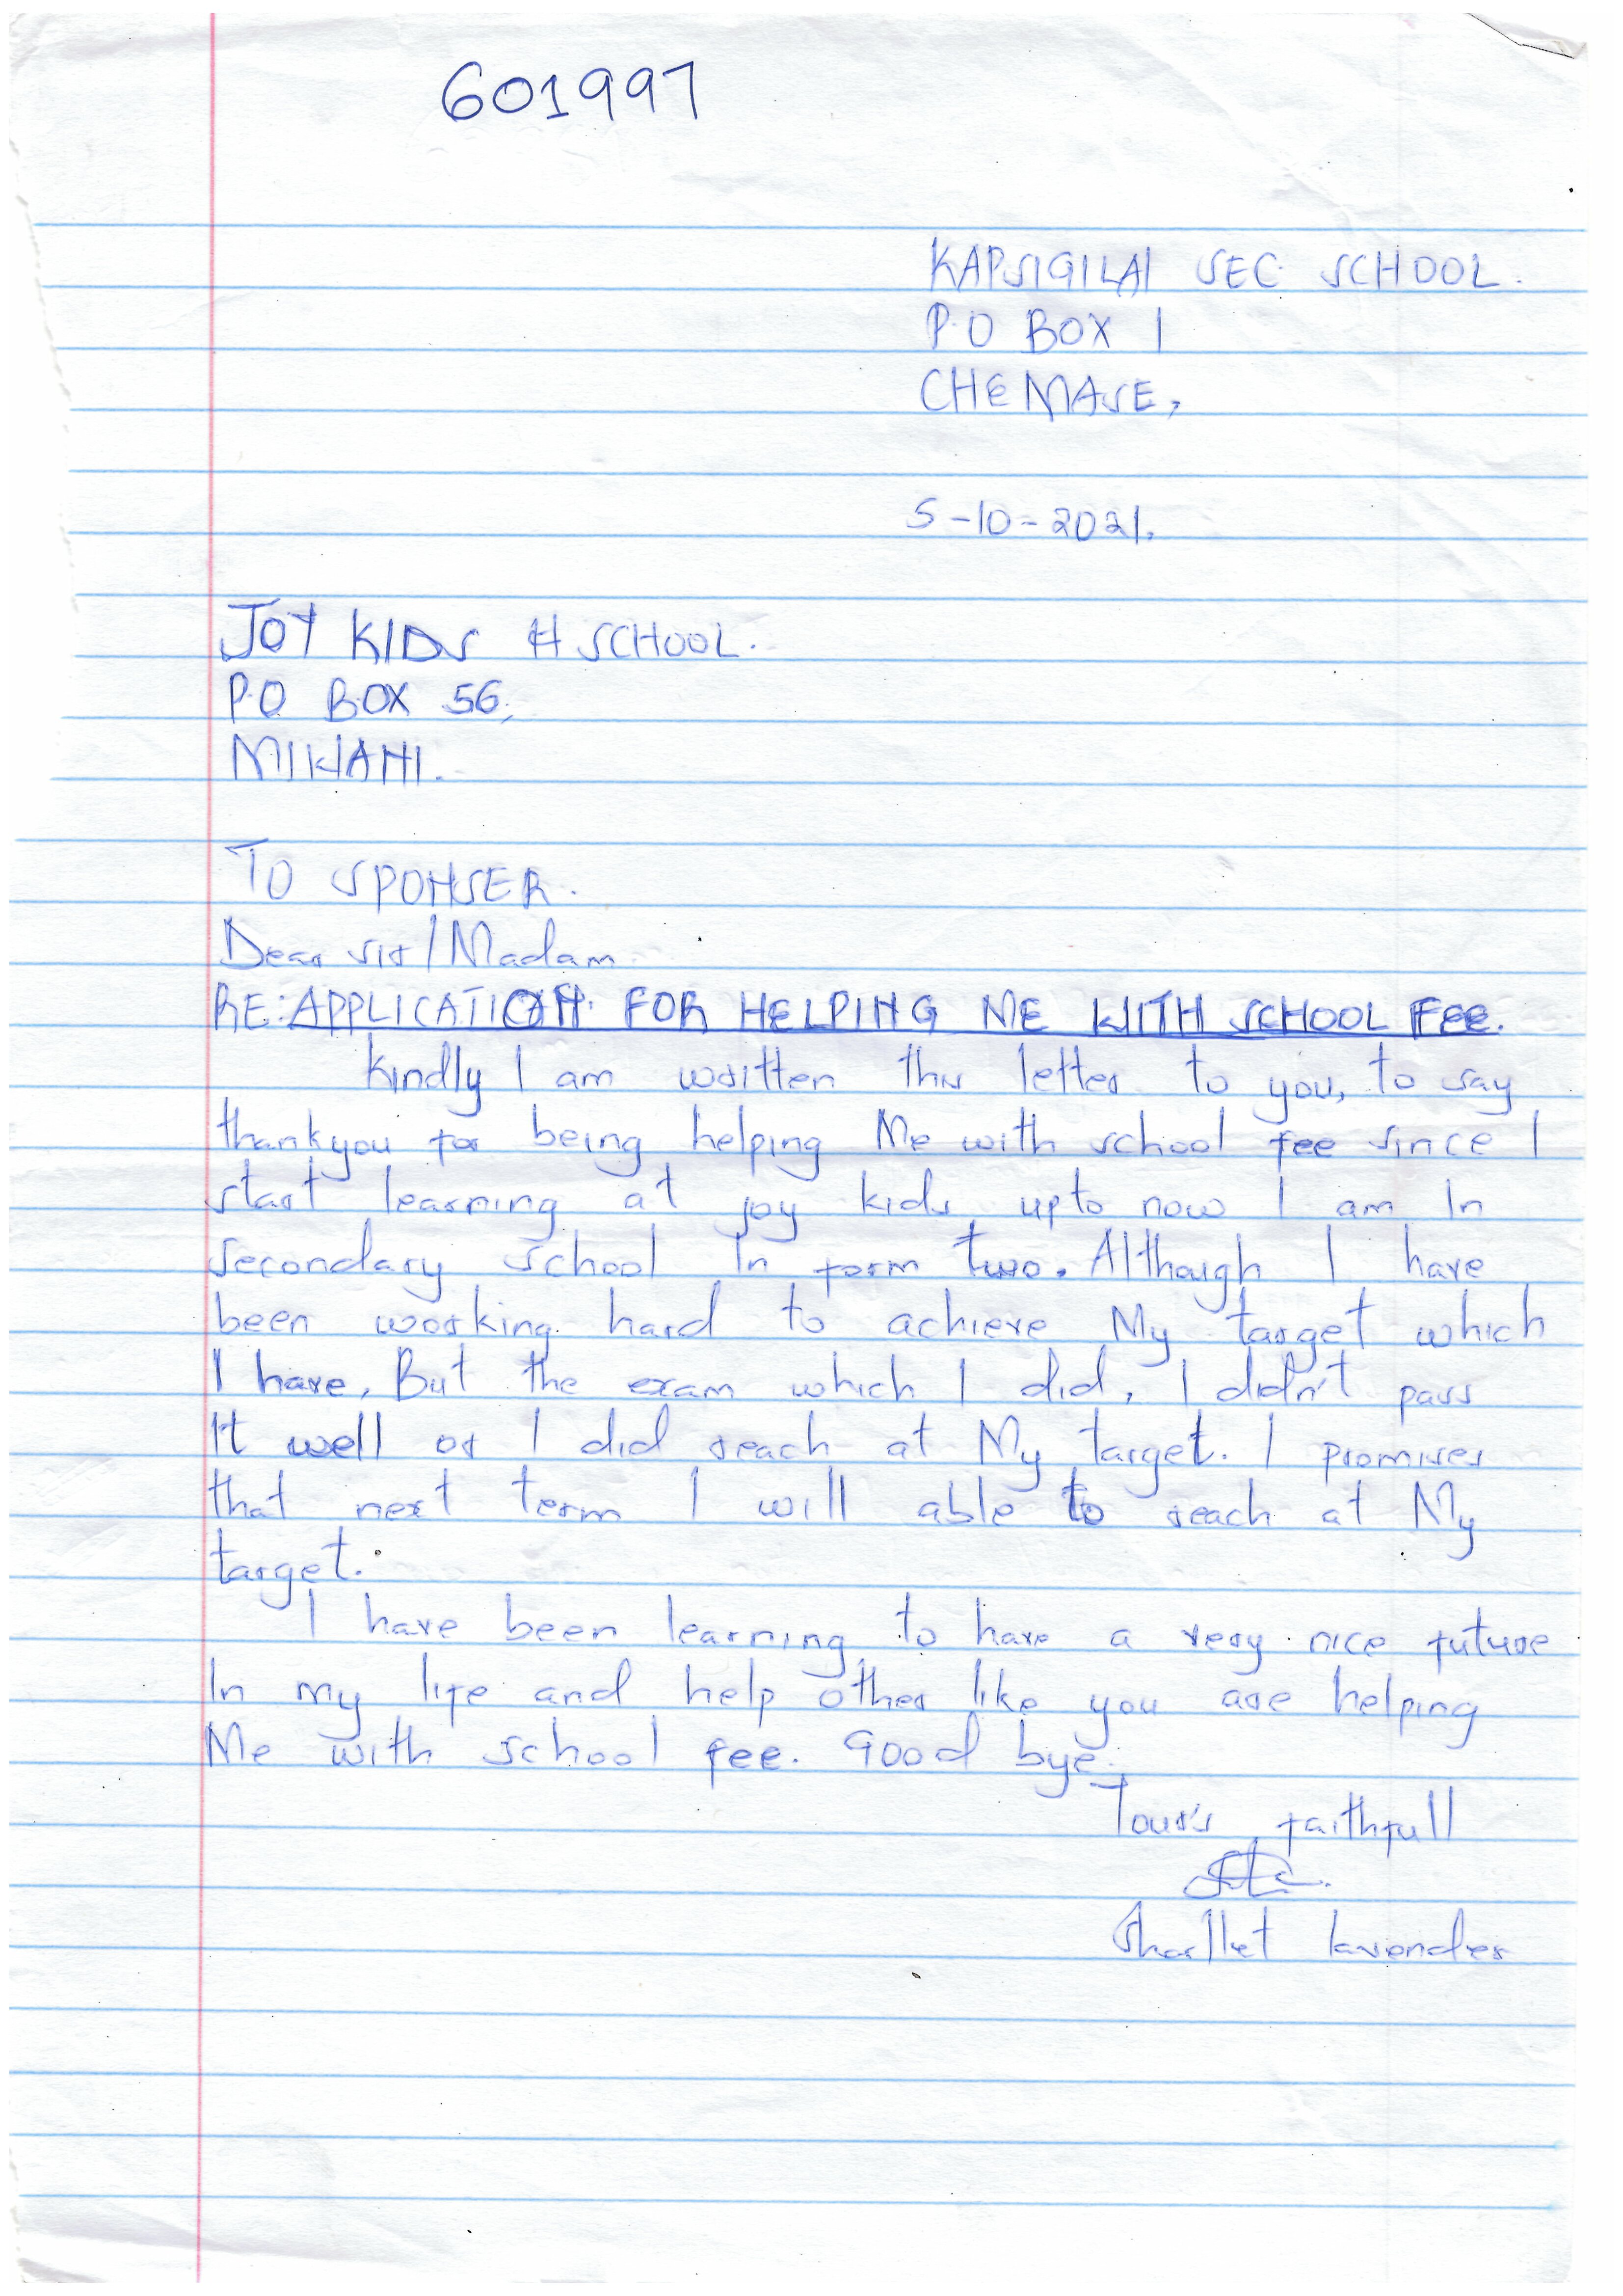 601997
KAPSIGILAI SEC SCHOOL.
P.O BOX 1
CHEMASE,
5-10-2021.
JOY KIDS SCHOOL.
P.O BOX 56,
MIWANI.
TO SPONSER.
Dear sir/Madam
RE: APPLICATION FOR HELPING ME WITH SCHOOL FEE.
Kindly I am written this letter to you, to say
thankyou for being helping Me with school fee since I
start learning at joy kids upto now I am In
secondary school In form two. Although I have
been working hard to achieve My target which
I have. But the exam which I did, I didn't pass
It well or I did reach at My target. I promises
that next term I will able to reach at My
target.
I have been learning to have a very nice future
In my life and help other like you are helping
Me with school fee. Good bye.
Your's faithfull
Sharllet lavender